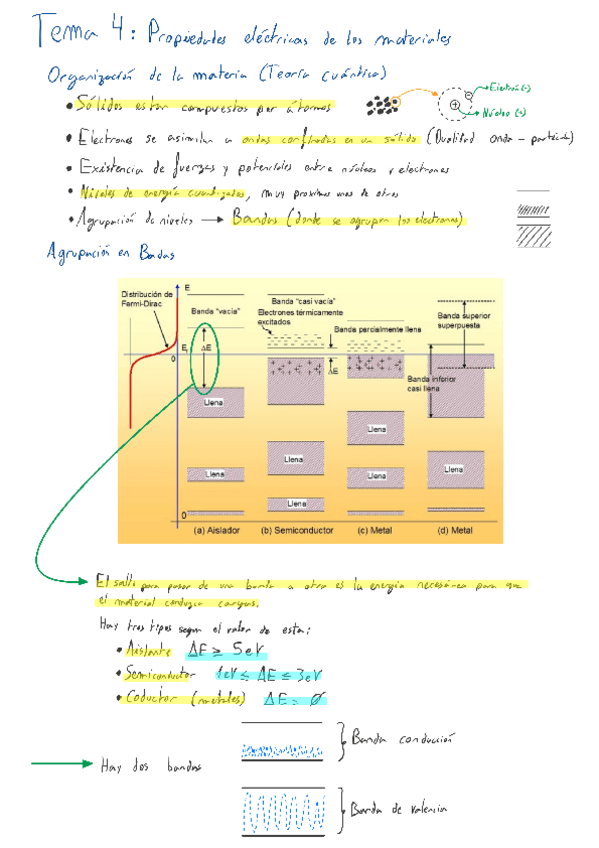 Tema 4: Propiedades eléctricas de los materiales
Organización de la materia (Teoría cuántica)
• Sólidos están compuestos por átomos
Electrón (-)
Núcleo (+)
• Electrones se asimilan a ondas confinadas en un sólido (Dualidad onda - partícula)
• Existencia de fuerzas y potenciales entre núcleos y electrones
• Niveles de energía cuantizados, muy proximos unos de otros
• Agrupación de niveles → Bandas (donde se agrupan los electrones)
Agrupación en Bandas
Distribución de
Fermi-Dirac
E
Banda "vacía"
Banda "casi vacía"
Electrones térmicamente
excitados
Banda parcialmente llena
Banda superior
superpuesta
E
ΔE
0
ΔE
Banda inferior
casi llena
Llena
Llena
Llena
Llena
Llena
Llena
Llena
0
(a) Aislador
(b) Semiconductor
(c) Metal
(d) Metal
El salto para pasar de una banda a otra es la energía necesaria para que
el material conduzca cargas.
Hay tres tipos segun el valor de esta:
• Aislante ΔE ≥ 5eV
• Semiconductor 1eV ≤ ΔE ≤ 3eV
• Coductor (metales) ΔE = Ø
Banda conducción
Hay dos bandas
Banda de valencia